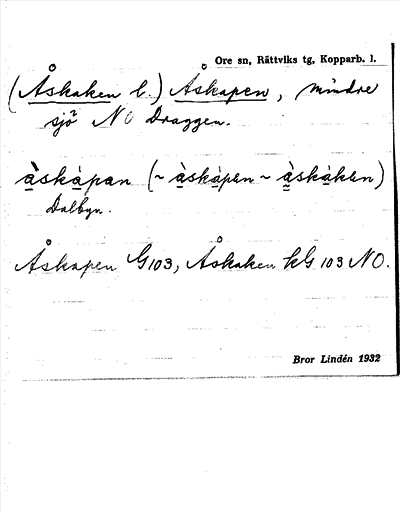 Ore sn, Rättviks tg, Kopparb. l.
(Åskaken l.) Åskapen, mindre
sjö NO Draggen.
àskàpan (~ àskàpen ~ àskàken)
Dalbyn.
Åskapen G103, Åskaken kG 103 NO.
Bror Lindén 1932